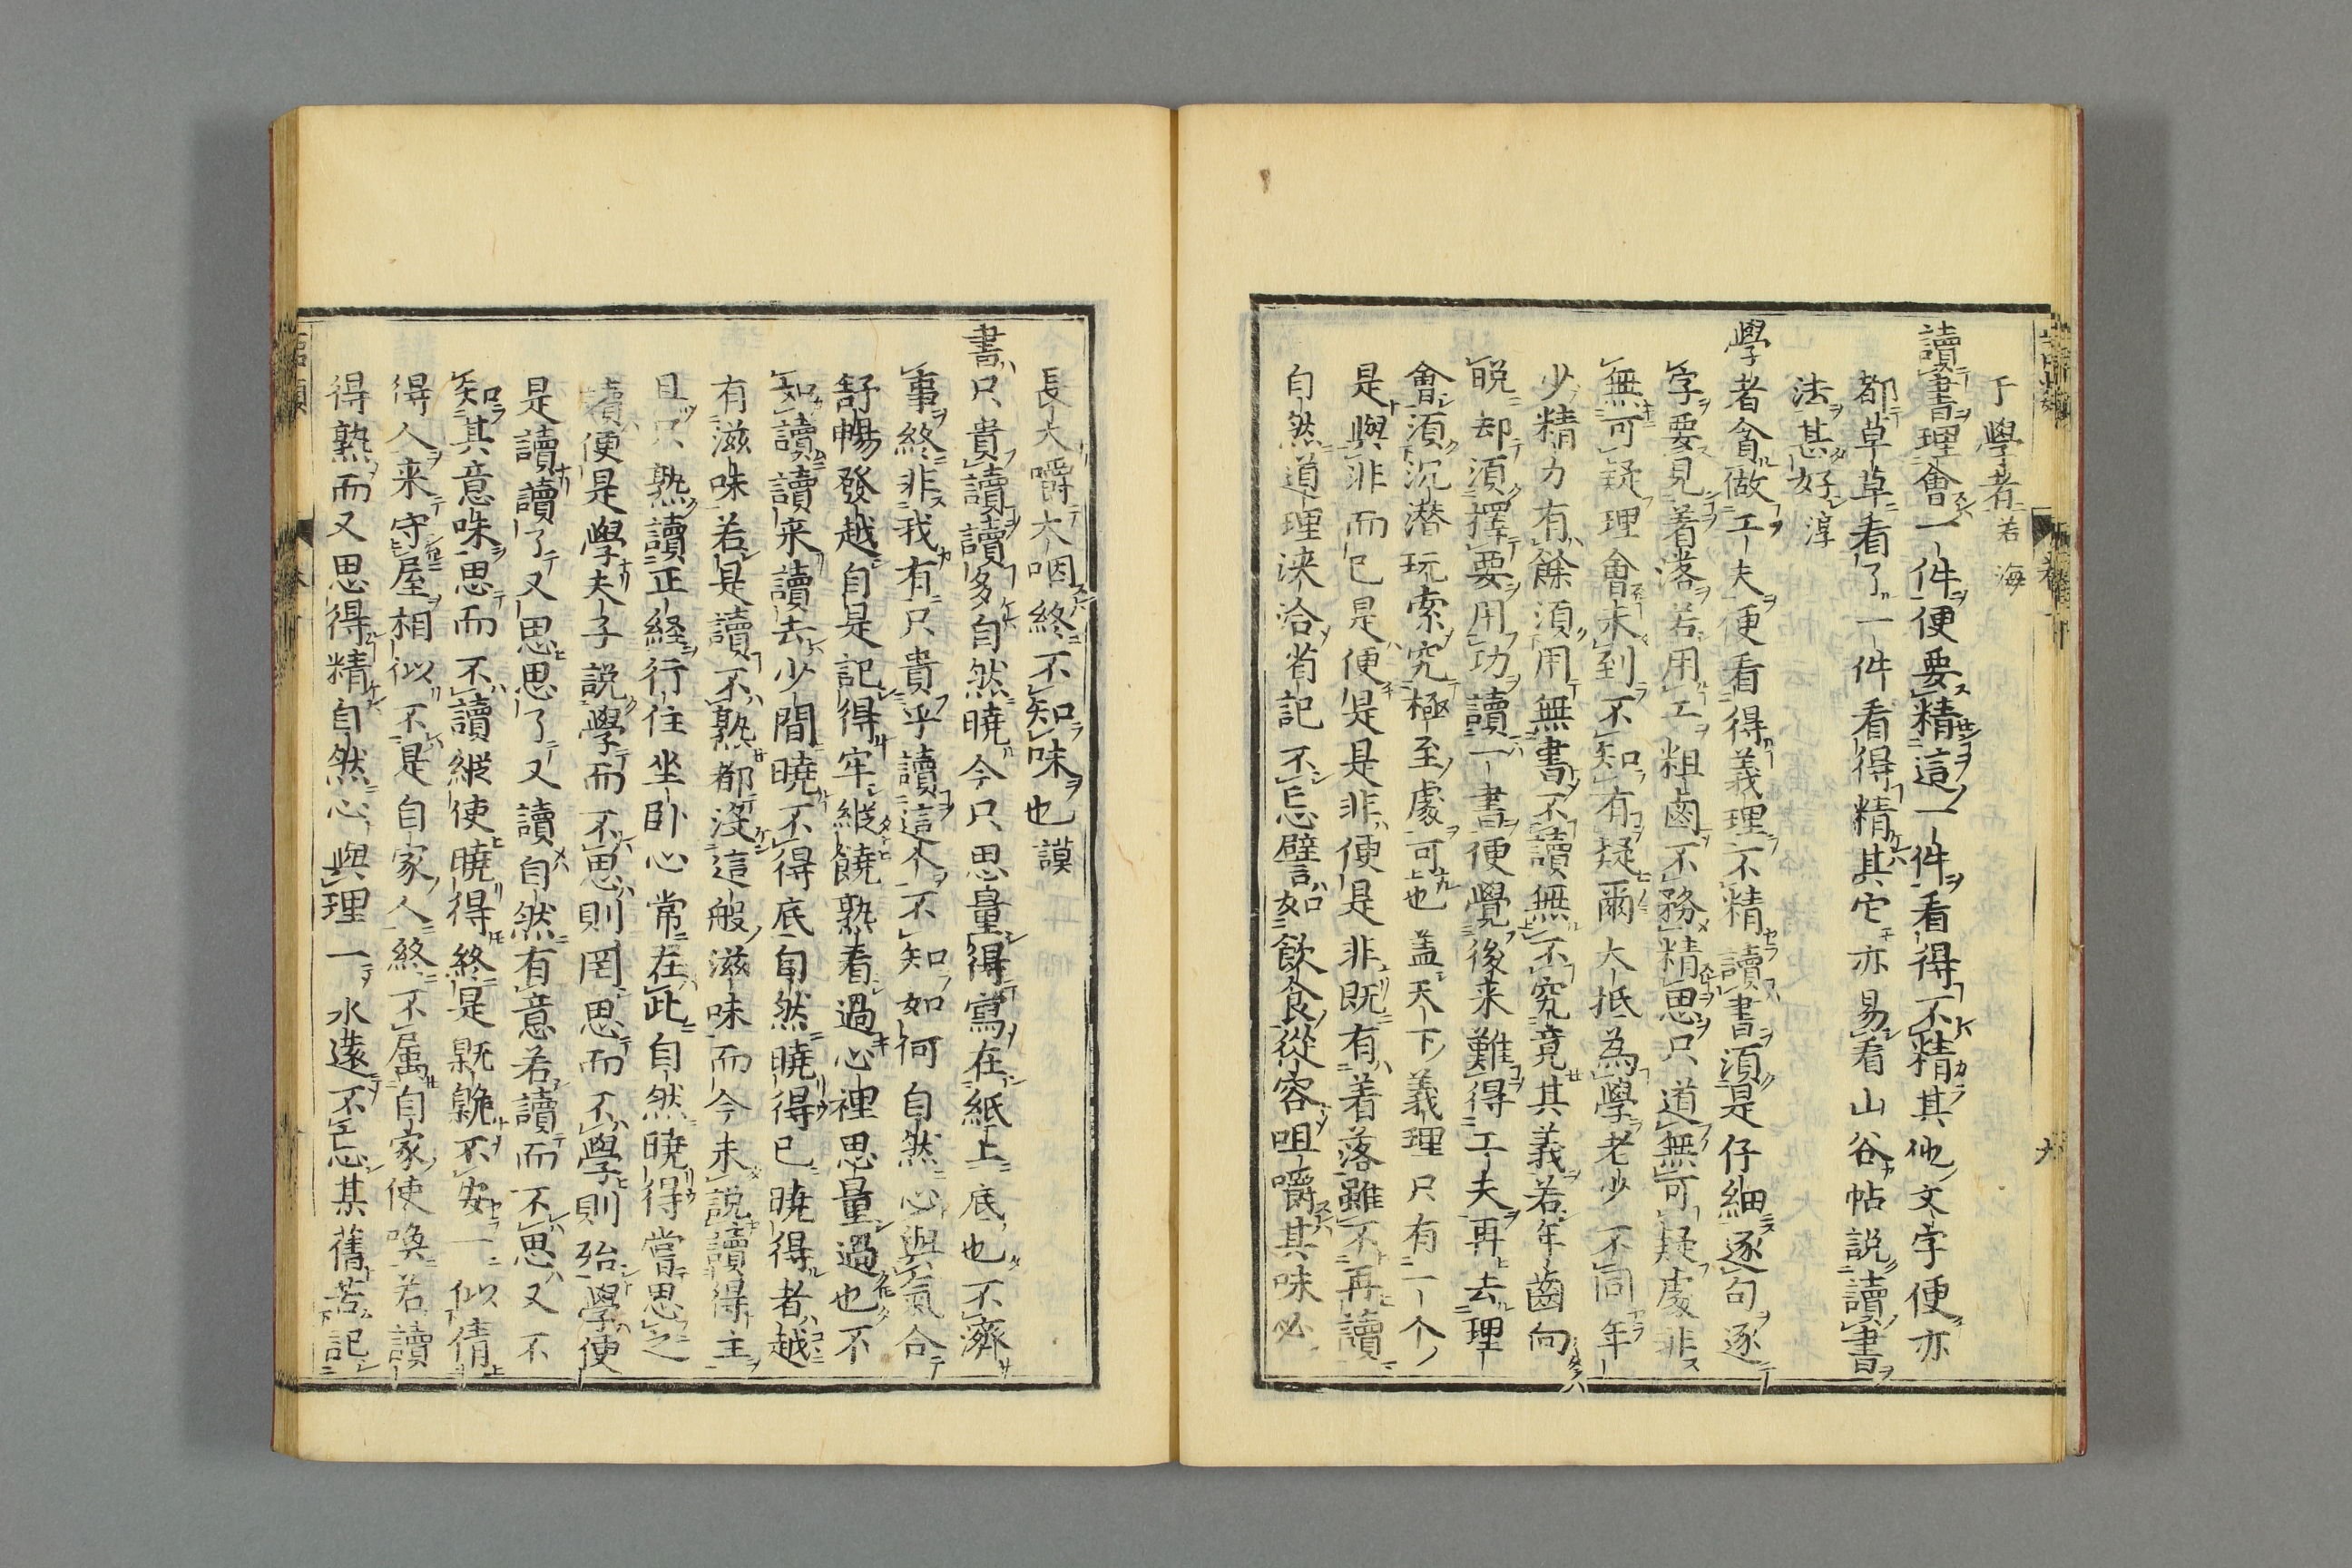 于學者若海
讀書理會一件便要精這一件看得不精其他文字便亦
都草草看了一件看得精其它亦易看山谷帖說讀書
法甚好淳
學者貪做工夫便看得義理不精讀書須是仔細逐句逐
字要見着落若用工粗鹵不務精思只道無可疑處非
無可疑理會未到不知有疑爾大抵為學老少不同年
少精力有餘須用無書不讀無不究竟其義若年齒向
晩却須擇要用功讀一書便覺後来難得工夫再去理
會須沉潜玩索究極至處可也盖天下義理只有一个
是與非而已是便是是非便是非既有着落雖不再讀
自然道理浹洽省記不忘譬如飲食從容咀嚼其味必
長大嚼大咽終不知味也謨
書只貴讀讀多自然曉今只思量得寫在紙上底也不濟
事終非我有只貴乎讀這个不知如何自然心與氣合
舒暢發越自是記得牢縱饒熟看過心裡思量過也不
如讀讀来讀去少間曉不得底自然曉得已曉得者越
有滋味若是讀不熟都没這般滋味而今未說讀得主
且只熟讀正経行住坐卧心常在此自然曉得嘗思之
讀便是學夫子説學而不思則罔思而不學則殆學便
是讀讀了又思思了又讀自然有意若讀而不思又不
知其意味思而不讀縱使曉得終是鼿鼿不安一似倩
得人来守屋相似不是自家人終不属自家使喚若讀
得熟而又思得精自然心與理一永遠不忘某舊苦記